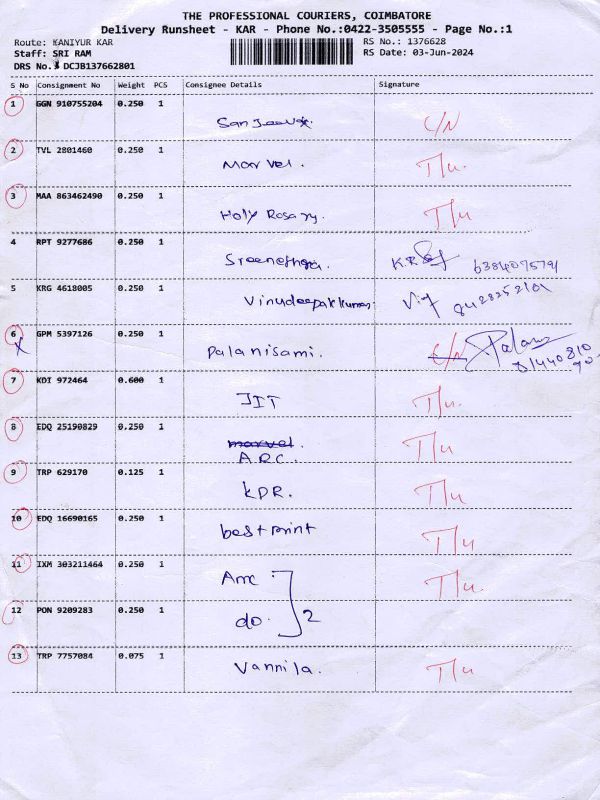 THE PROFESSIONAL COURIERS, COIMBATORE
Delivery Runsheet - KAR - Phone No.:0422-3505555 - Page No.:1
Route: KANIYUR KAR RS No.: 1376628
Staff: SRI RAM RS Date: 03-Jun-2024
DRS No. DCJB137662801
S No Consignment No Weight PCS Consignee Details Signature
1 GGN 910755204 0.250 1 C/N
2 TVL 2801460 0.250 1 Marvel. T/u.
3 MAA 863462490 0.250 1 Holy Rosary. T/u
4 RPT 9277686 0.250 1 K.R 6384075791
5 KRG 4618005 0.250 1 Vinudeepakkumar 9428252101
6 GPM 5397126 0.250 1 Palanisami. C/N
x
7 KDI 972464 0.600 1 JIT T/u.
8 EDQ 25190829 0.250 1 marvel. T/u
A.R.C.
9 TRP 629170 0.125 1 KDR. T/u
10 EDQ 16690165 0.250 1 best print T/u
11 IXM 303211464 0.250 1 T/u
12 PON 9209283 0.250 1 do. 2
13 TRP 7757084 0.075 1 Vannila. T/u